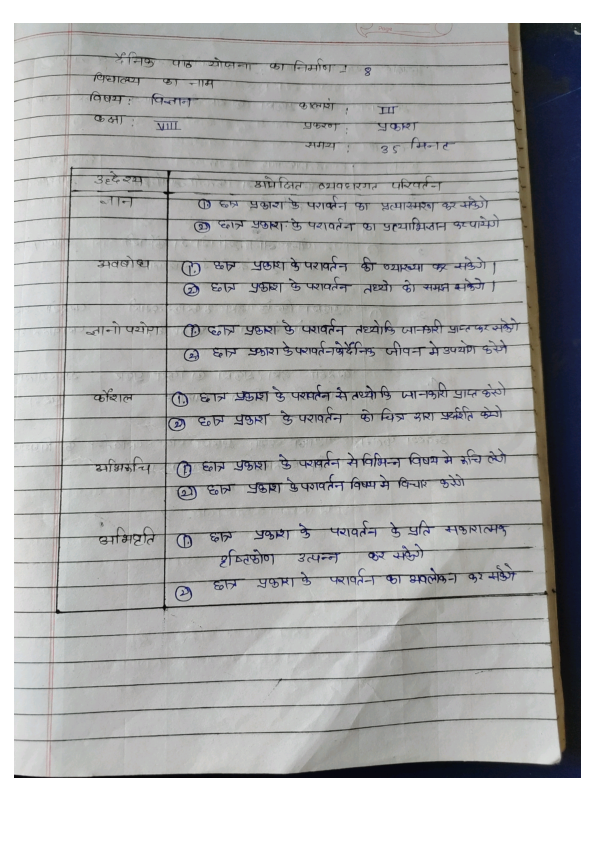 दैनिक पाठ योजना का निर्माण :- 8
विद्यालय का नाम
विषय : विज्ञान कालांश : III
कक्षा : VIII प्रकरण : प्रकाश
समय : 35 मिनट
उद्देश्य अपेक्षित व्यवहारगत परिवर्तन
ज्ञान ① छात्र प्रकाश के परावर्तन का प्रत्यास्मरण कर सकेंगे
② छात्र प्रकाश के परावर्तन का प्रत्याभिज्ञान कर पायेगे
अवबोध ① छात्र प्रकाश के परावर्तन की व्याख्या कर सकेंगे।
② छात्र प्रकाश के परावर्तन तथ्यो को समझ सकेंगे।
ज्ञानोपयोग ① छात्र प्रकाश के परावर्तन तथ्योकि जानकारी प्राप्त कर सकेंगे
② छात्र प्रकाश के परावर्तन को दैनिक जीवन मे उपयोग करेंगे
कौशल ① छात्र प्रकाश के परावर्तन से तथ्योकि जानकारी प्राप्त करेंगे
② छात्र प्रकाश के परावर्तन को चित्र द्वारा प्रदर्शित करेंगे
अभिरुचि ① छात्र प्रकाश के परावर्तन से विभिन्न विषय मे रुचि लेंगे
② छात्र प्रकाश के परावर्तन विषय मे विचार करेंगे
अभिवृति ① छात्र प्रकाश के परावर्तन के प्रति सकारात्मक
दृष्टिकोण उत्पन्न कर सकेंगे
② छात्र प्रकाश के परावर्तन का अवलोकन कर सकेंगे